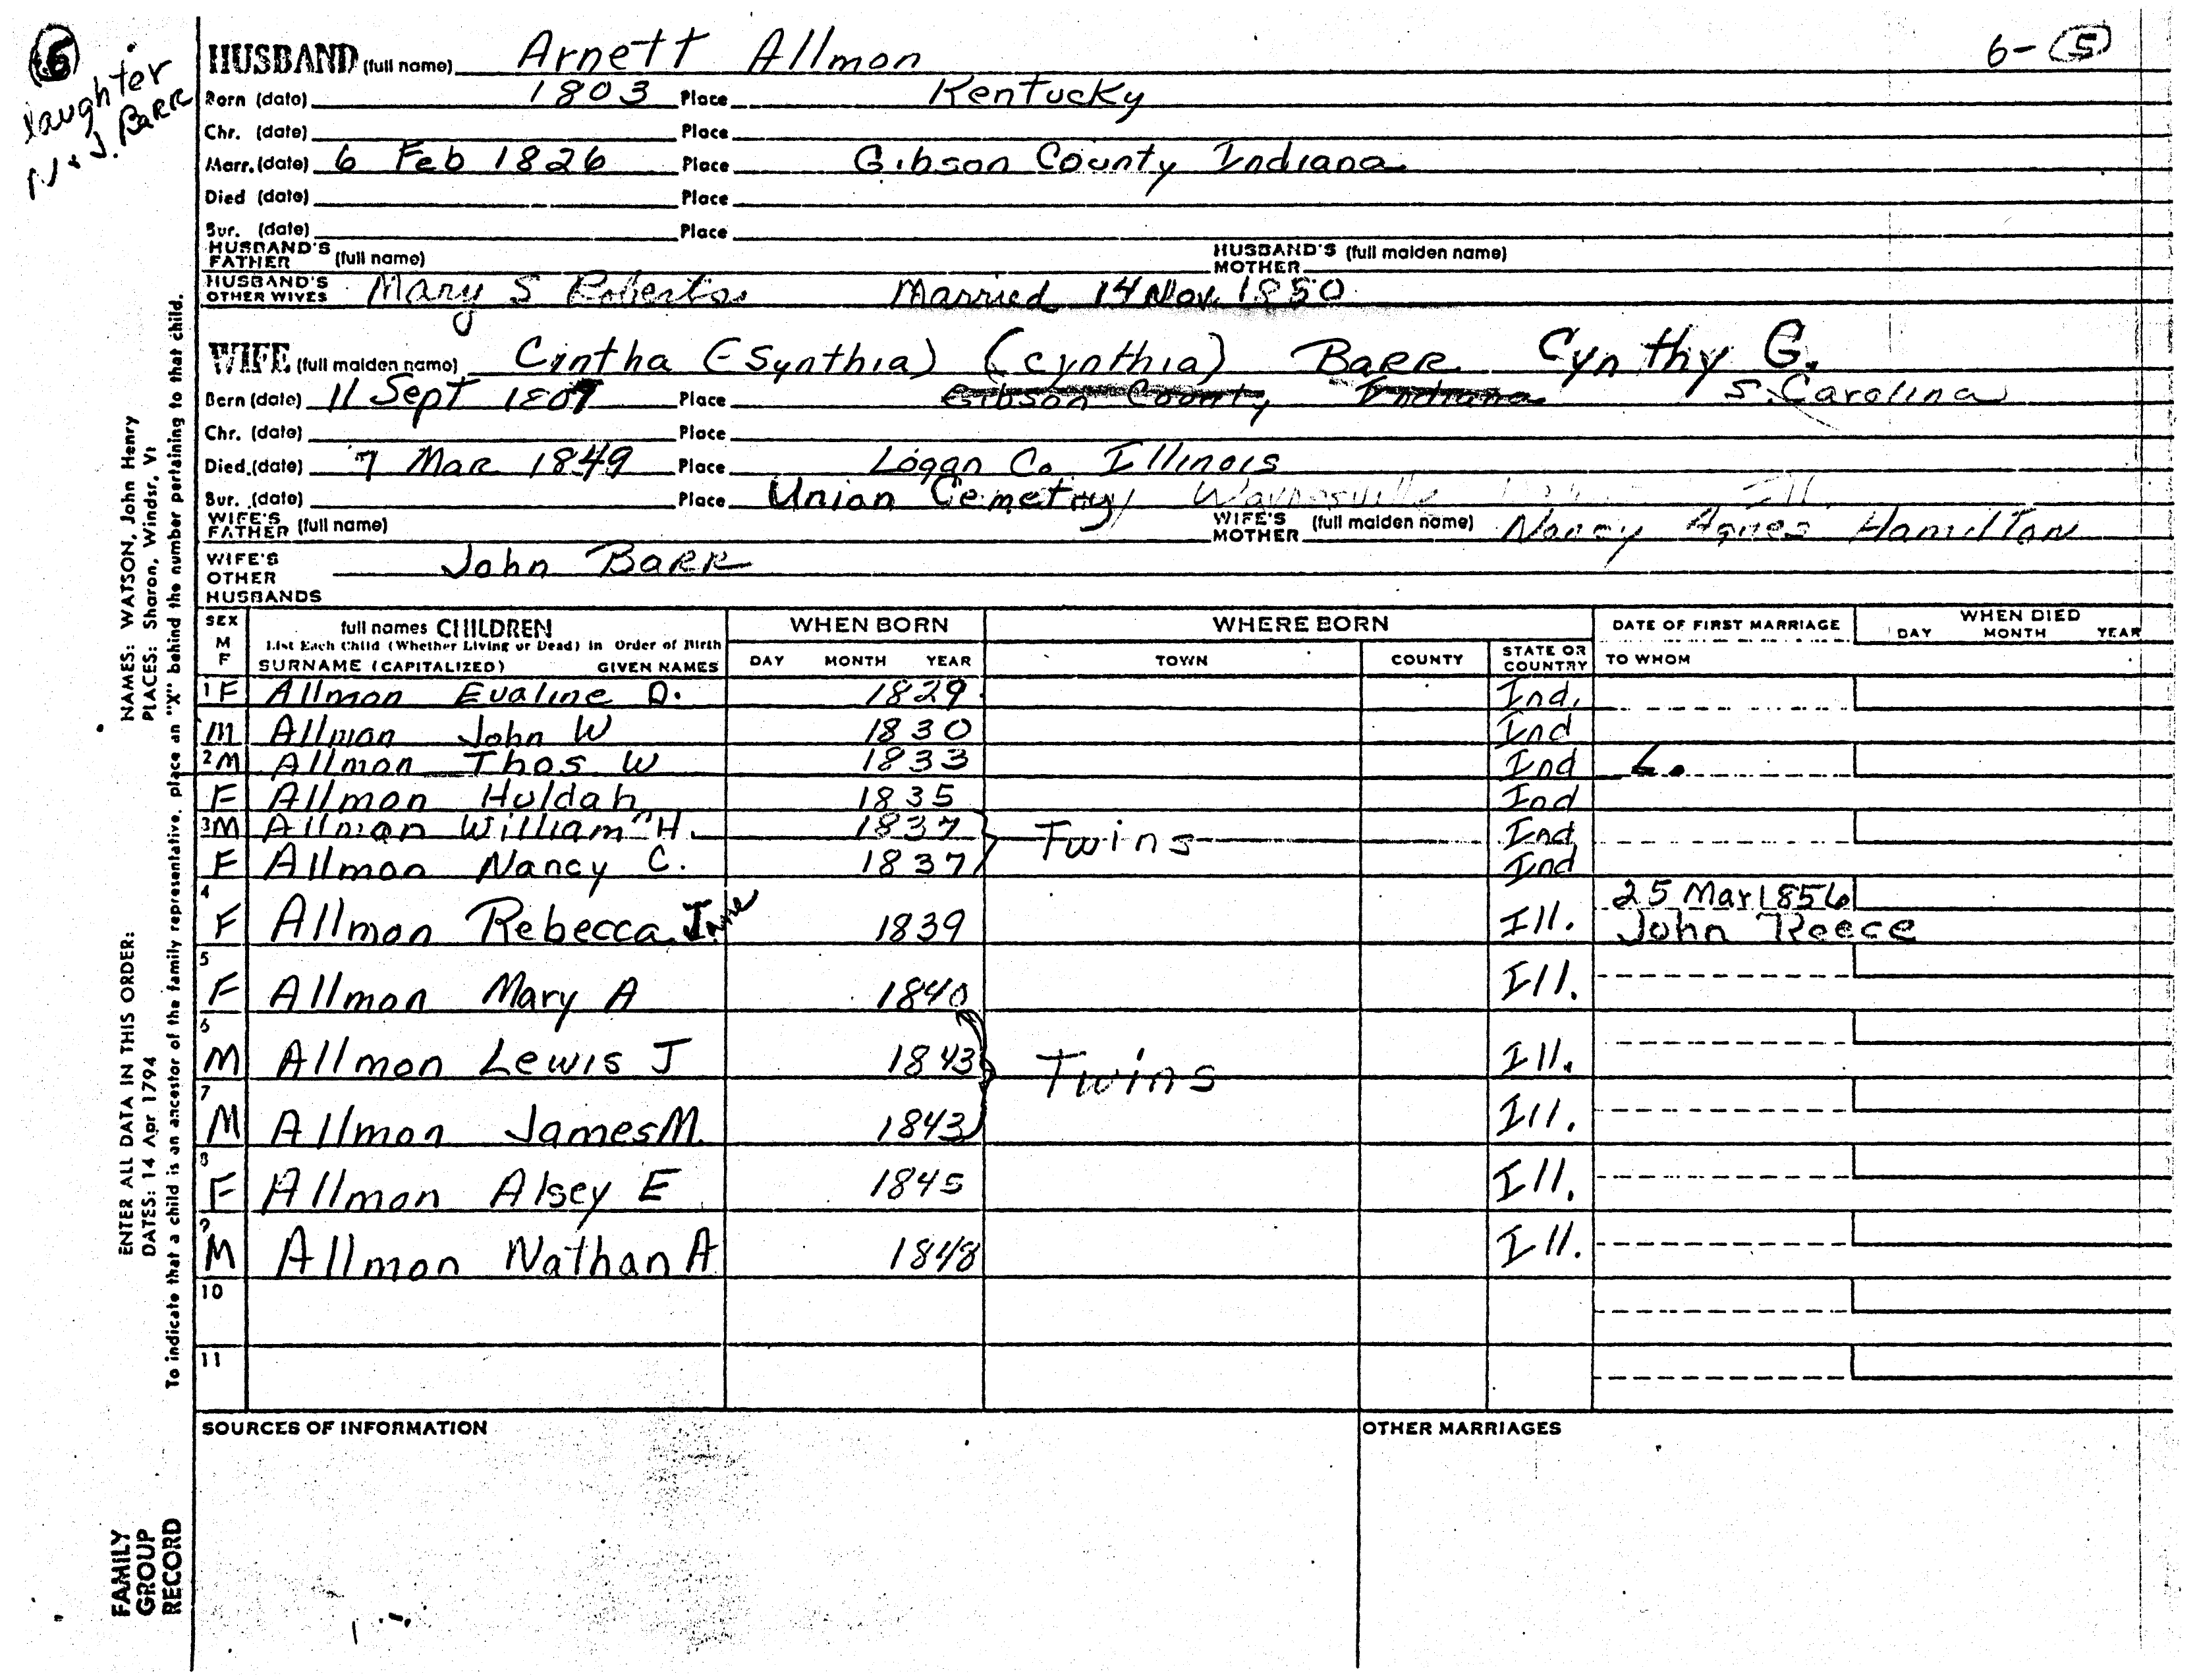 6
daughter
N & J. BARR
6-(5)
HUSBAND (full name) Arnett Allmon
Born (date) 1803 Place Kentucky
Chr. (date) Place
Marr. (date) 6 Feb 1826 Place Gibson County Indiana
Died (date) Place
Bur. (date) Place
HUSBAND'S FATHER (full name) HUSBAND'S MOTHER (full maiden name)
HUSBAND'S OTHER WIVES Mary S Roberts Married 14 Nov. 1850
WIFE (full maiden name) Cintha (Synthia) (cynthia) BARR Cynthy G.
Born (date) 11 Sept 1807 Place Gibson County Indiana S. Carolina
Chr. (date) Place
Died (date) 7 Mar 1849 Place Logan Co Illinois
Bur. (date) Place Union Cemetry Waynesville Ill.
WIFE'S FATHER (full name) WIFE'S MOTHER (full maiden name) Nancy Agnes Hamilton
WIFE'S OTHER HUSBANDS John BARR
SEX M F
full names CHILDREN
List Each Child (Whether Living or Dead) in Order of Birth
SURNAME (CAPITALIZED) GIVEN NAMES
WHEN BORN
DAY MONTH YEAR
WHERE BORN
TOWN COUNTY STATE OR COUNTRY
DATE OF FIRST MARRIAGE
TO WHOM
WHEN DIED
DAY MONTH YEAR
1 F Allmon Evaline D. 1829 Ind.
M Allman John W 1830 Ind
2 M Allmon Thos W 1833 Ind
F Allmon Huldah 1835 Ind
3 M Allman William H. 1837 Twins Ind
F Allmon Nancy C. 1837 Ind
4 F Allmon Rebecca Jane 1839 Ill. 25 Mar 1856
John Reece
5 F Allmon Mary A 1840 Ill.
6 M Allmon Lewis J 1843 Twins Ill.
7 M Allmon James M. 1843 Ill.
8 F Allmon Alsey E 1845 Ill.
9 M Allmon Nathan A 1848 Ill.
10
11
SOURCES OF INFORMATION
OTHER MARRIAGES
NAMES: WATSON, John Henry
PLACES: Sharon, Windsr, Vt
To indicate that a child is an ancestor of the family representative, place an "X" behind the number pertaining to that child.
ENTER ALL DATA IN THIS ORDER:
DATES: 14 Apr 1794
FAMILY
GROUP
RECORD